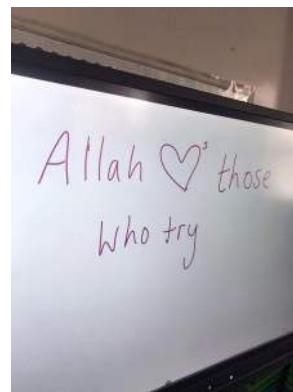 Allah ♡'s those
who try